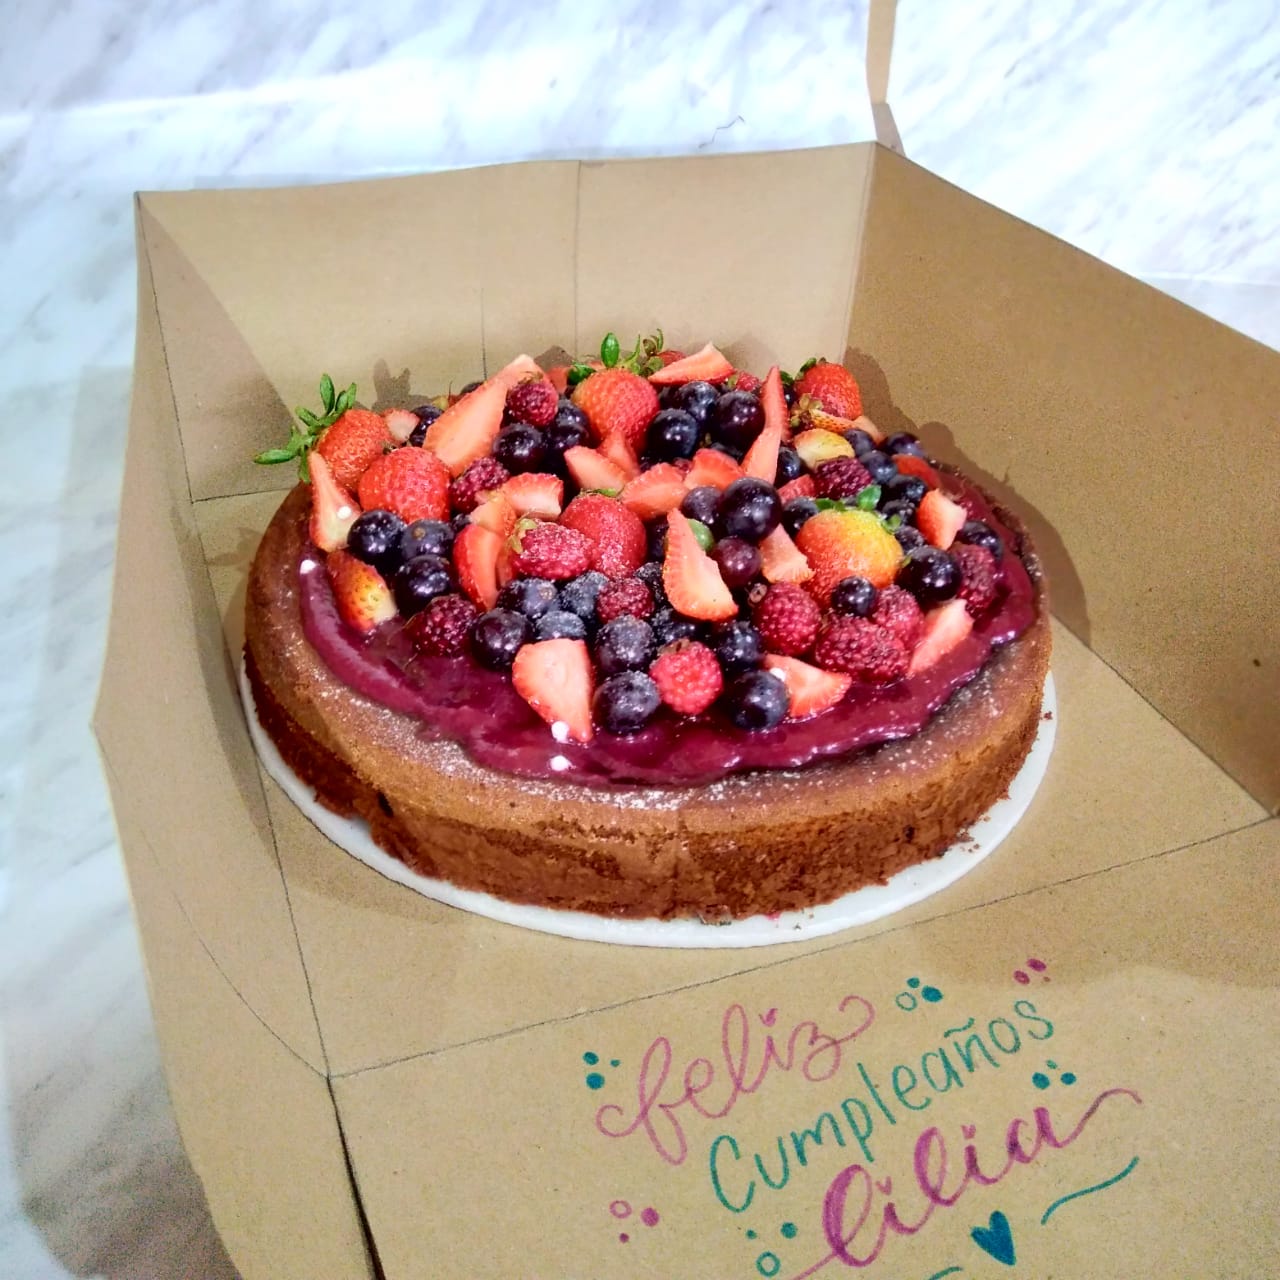 feliz
Cumpleaños
Lilia